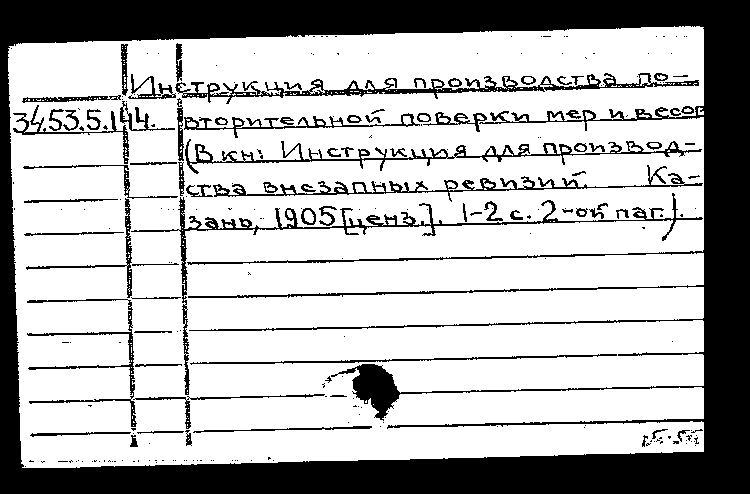 Инструкция для производства по-
34.53.5.144. вторительной поверки мер и весов
(В кн: Инструкция для производ-
ства внезапных ревизий. Ка-
зань, 1905 [ценз.]. 1-2 с. 2-ой паг.).